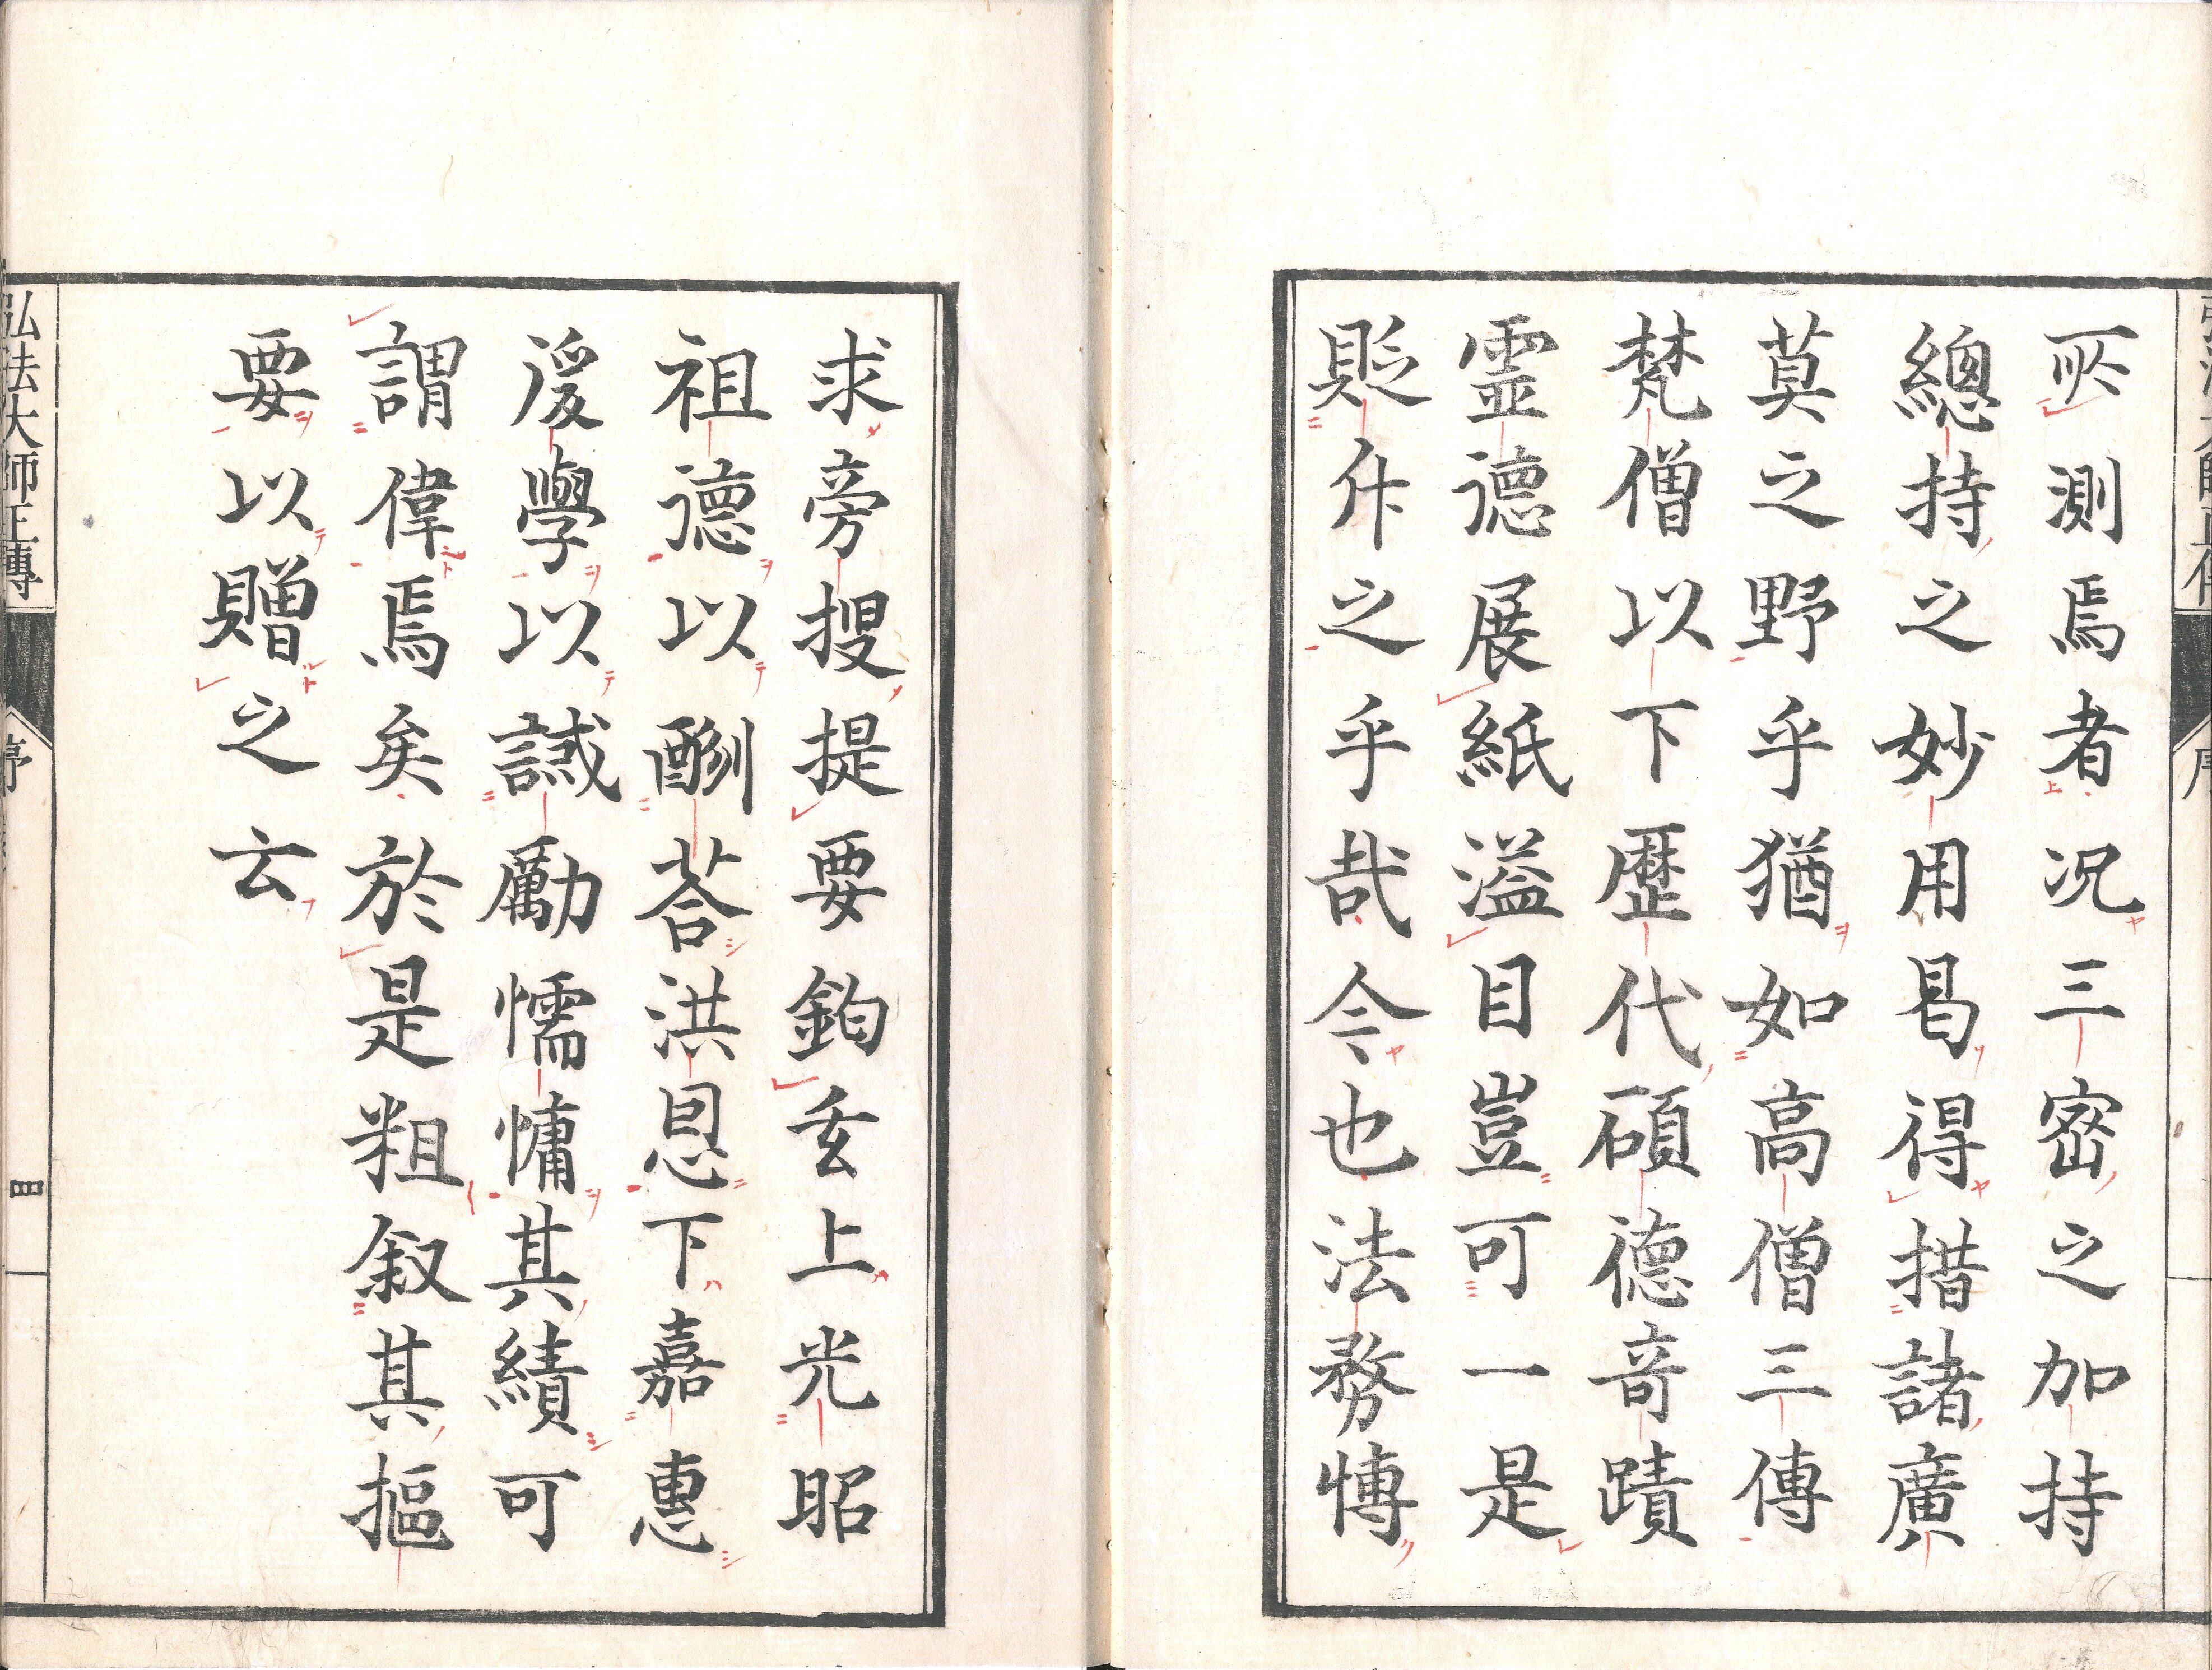 所測焉者況三密之加持
總持之妙用曷得措諸廣
莫之野乎猶如高僧三傳
梵僧以下歷代碩德奇蹟
靈德展紙溢目豈可一是
貶斥之乎哉今也法務博
求旁搜提要鉤玄上光昭
祖德以酬荅洪恩下嘉惠
後學以誡勵懦慵其績可
謂偉焉矣於是粗叙其樞
要以贈之云
弘法大師正傳
序
四